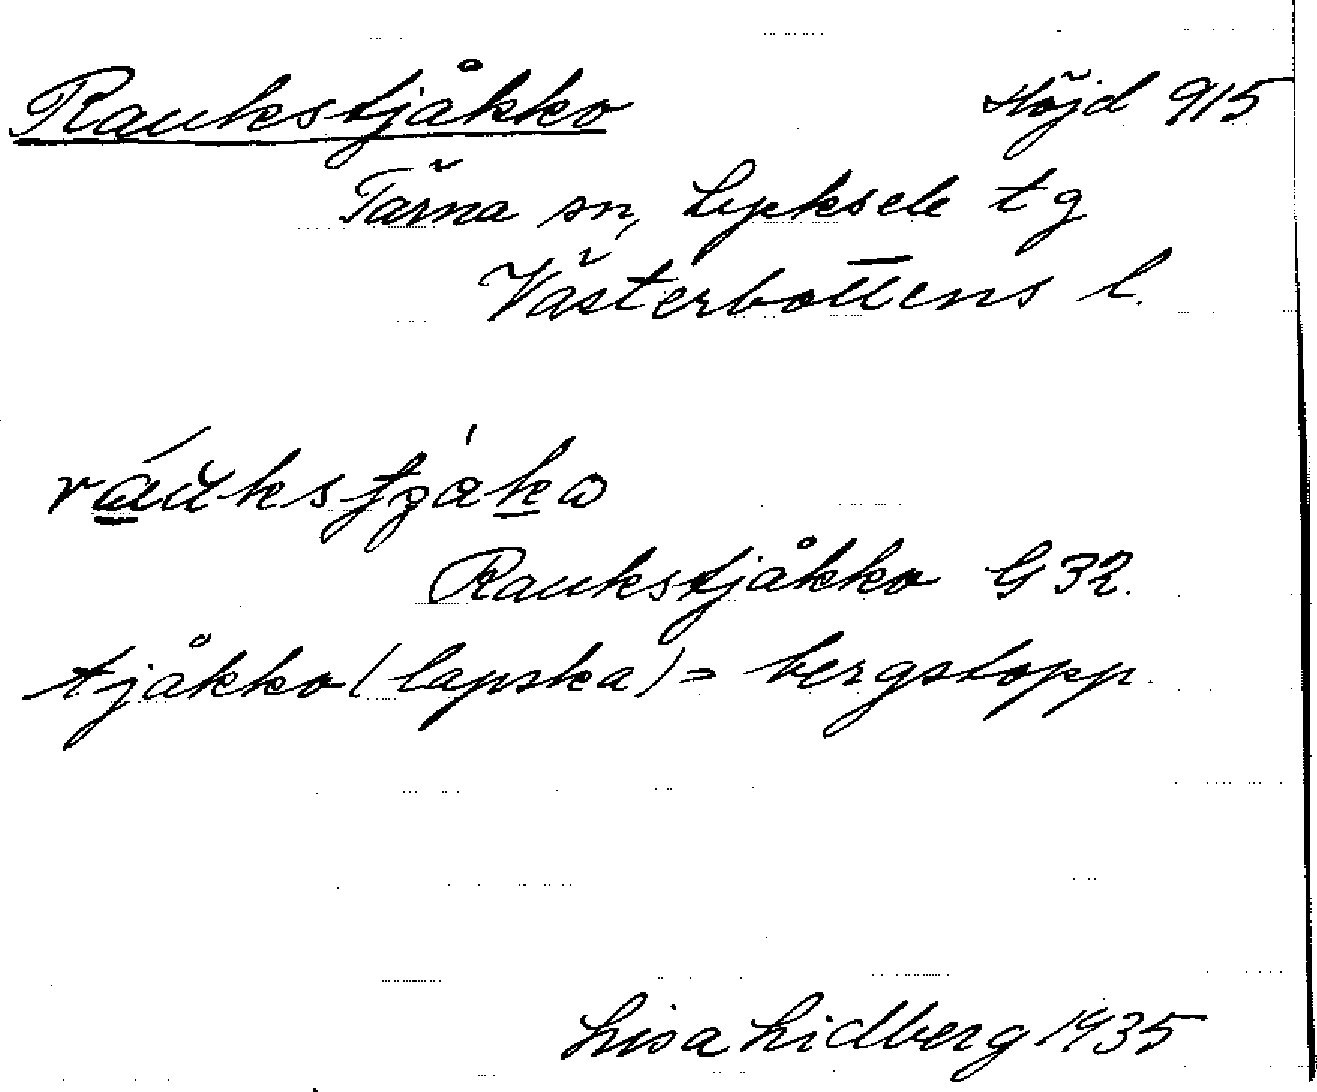 Raukstjåkko Höjd 915
Tärna sn, Lycksele tg
Västerbottens l.
ráukstjåko
Raukstjåkko G 32.
tjåkko (lapska) = bergstopp.
Lisa Lidberg 1935